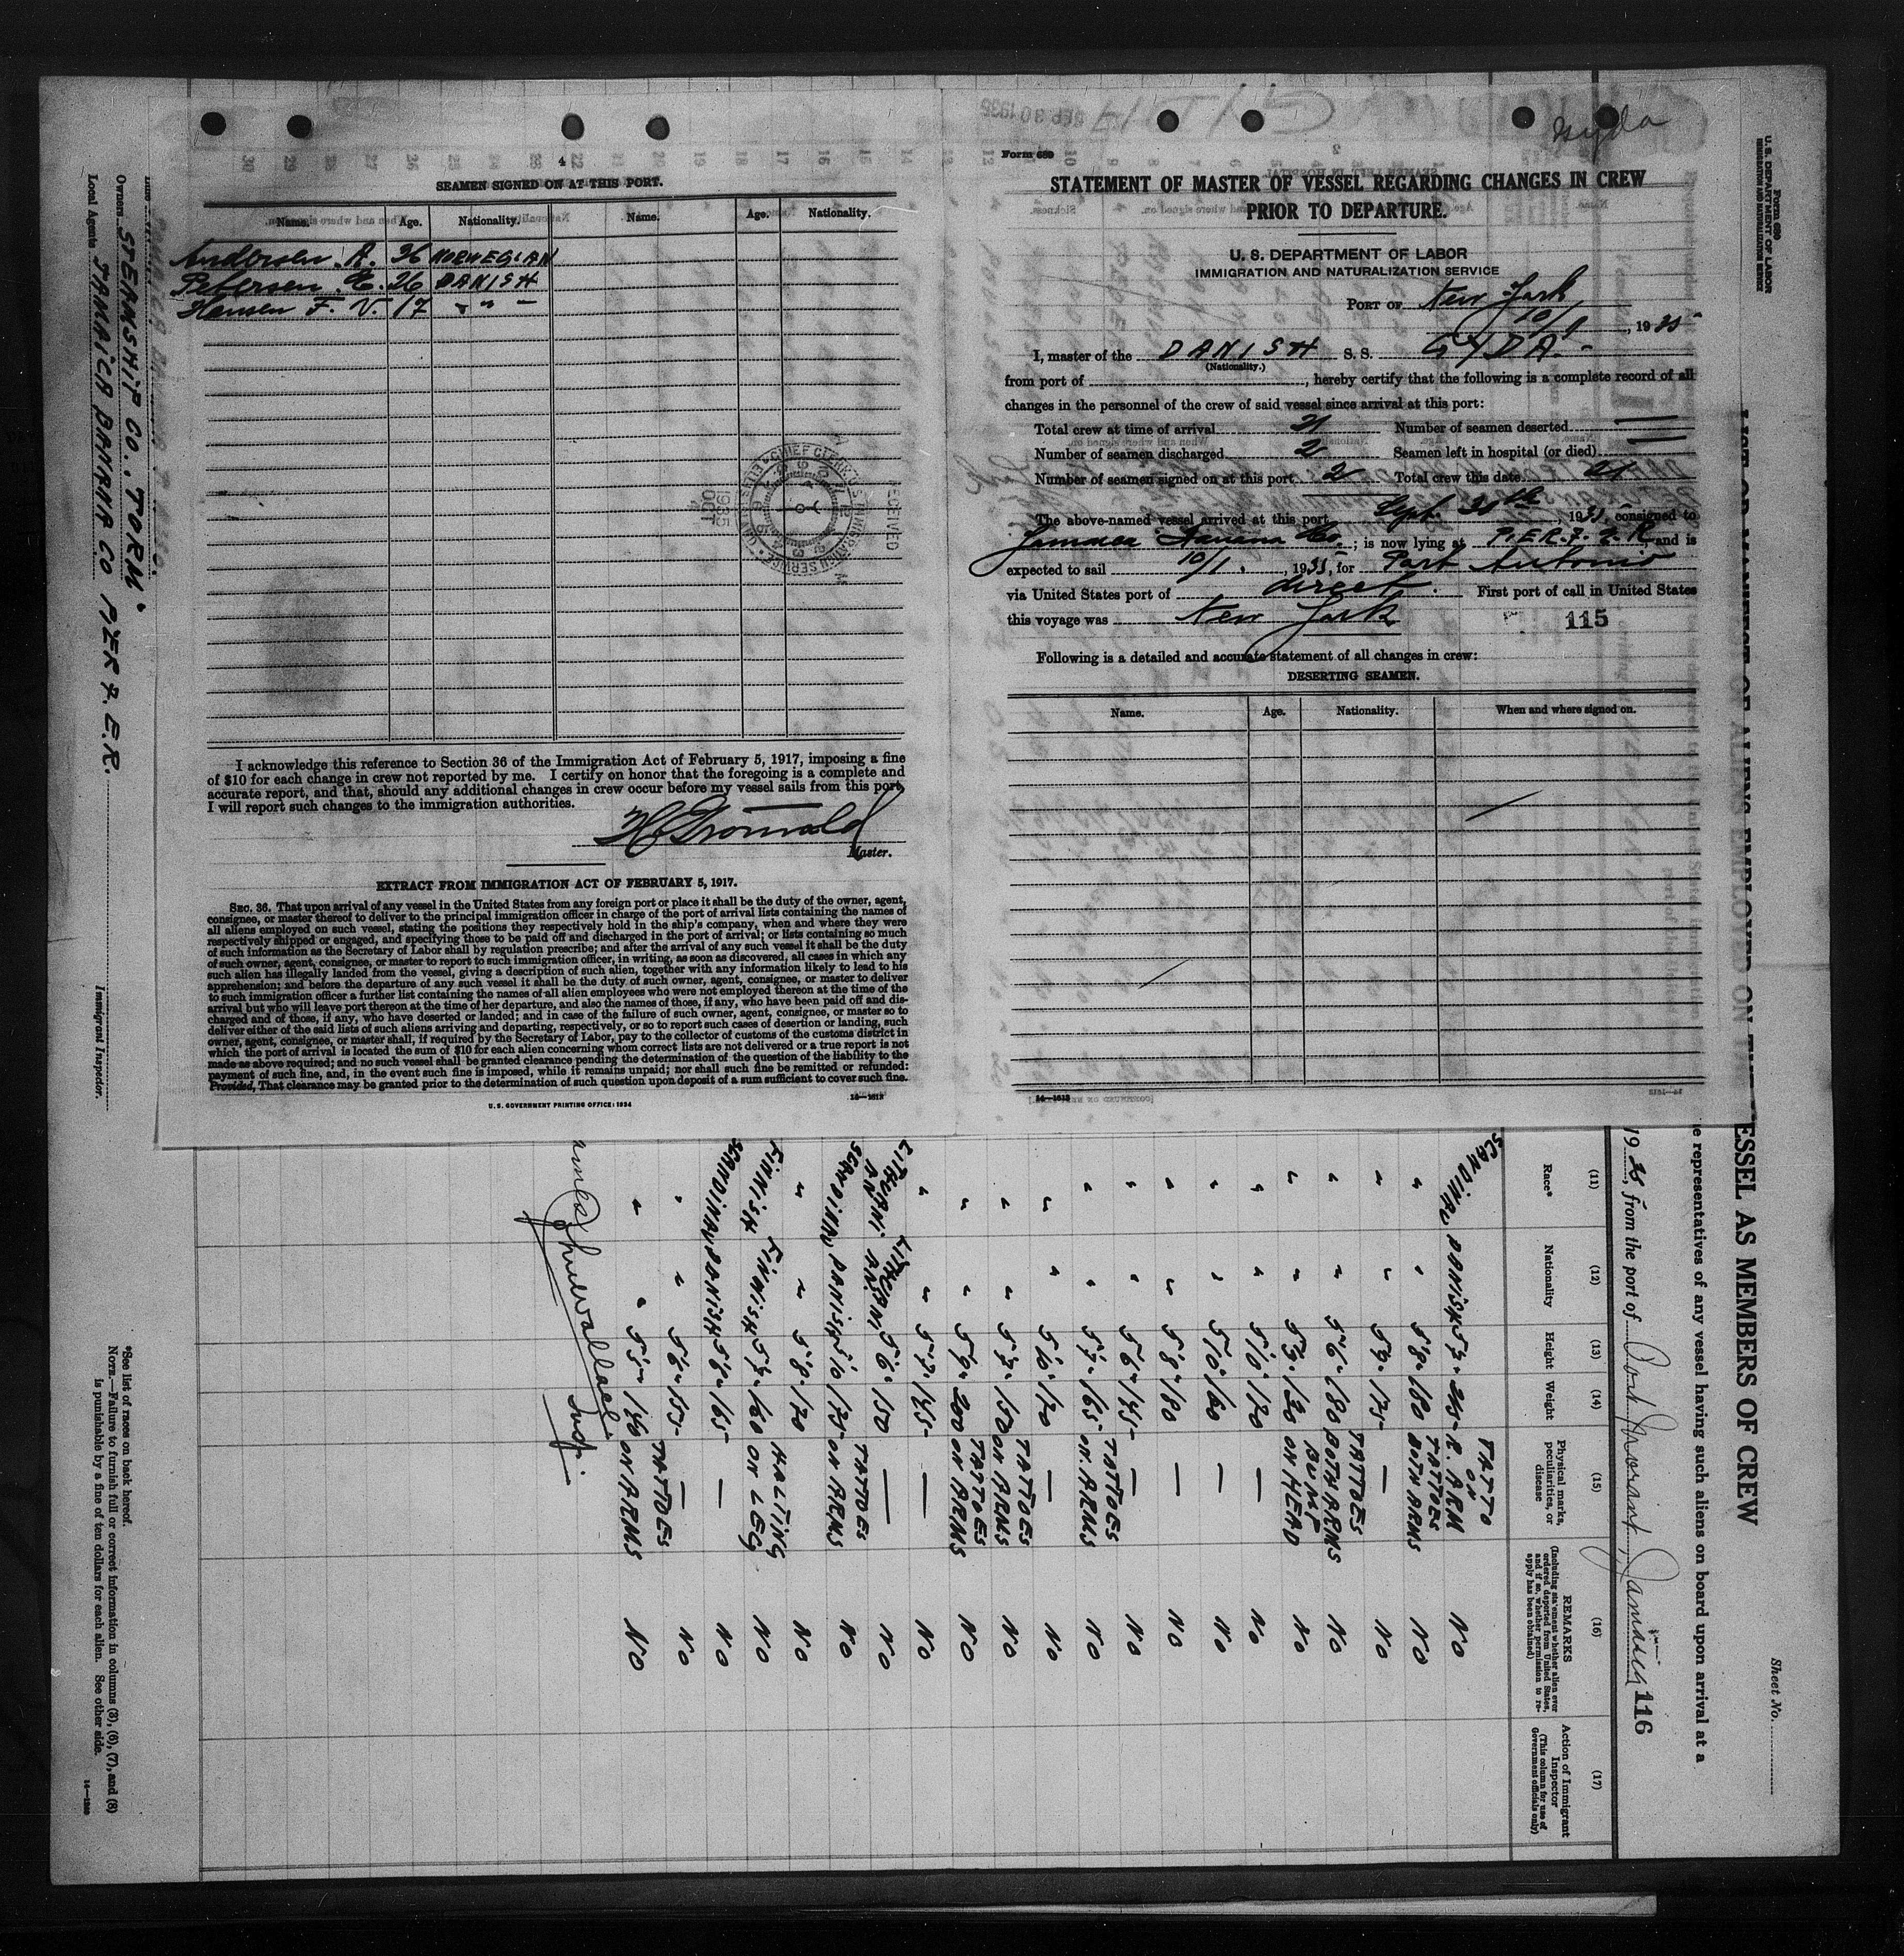 4
SEAMEN SIGNED ON AT THIS PORT.
Name. Age. Nationality. Name. Age. Nationality.
Andersen A. 36 NORWEGIAN
Petersen E. 26 DANISH
Hansen F. V. 17 " " "
RECEIVED
CHIEF CLERK U.S. IMMIGRATION SERVICE
1935 OCT
I acknowledge this reference to Section 36 of the Immigration Act of February 5, 1917, imposing a fine
of $10 for each change in crew not reported by me. I certify on honor that the foregoing is a complete and
accurate report, and that, should any additional changes in crew occur before my vessel sails from this port,
I will report such changes to the immigration authorities.
Master.
EXTRACT FROM IMMIGRATION ACT OF FEBRUARY 5, 1917.
SEC. 36. That upon arrival of any vessel in the United States from any foreign port or place it shall be the duty of the owner, agent,
consignee, or master thereof to deliver to the principal immigration officer in charge of the port of arrival lists containing the names of
all aliens employed on such vessel, stating the positions they respectively hold in the ship's company, when and where they were
respectively shipped or engaged, and specifying those to be paid off and discharged in the port of arrival; or lists containing so much
of such information as the Secretary of Labor shall by regulation prescribe; and after the arrival of any such vessel it shall be the duty
of such owner, agent, consignee, or master to report to such immigration officer, in writing, as soon as discovered, all cases in which any
such alien has illegally landed from the vessel, giving a description of such alien, together with any information likely to lead to his
apprehension; and before the departure of any such vessel it shall be the duty of such owner, agent, consignee, or master to deliver
to such immigration officer a further list containing the names of all alien employees who were not employed thereon at the time of the
arrival but who will leave port thereon at the time of her departure, and also the names of those, if any, who have been paid off and dis-
charged and of those, if any, who have deserted or landed; and in case of the failure of such owner, agent, consignee, or master so to
deliver either of the said lists of such aliens arriving and departing, respectively, or so to report such cases of desertion or landing, such
owner, agent, consignee, or master shall, if required by the Secretary of Labor, pay to the collector of customs of the customs district in
which the port of arrival is located the sum of $10 for each alien concerning whom correct lists are not delivered or a true report is not
made as above required; and no such vessel shall be granted clearance pending the determination of the question of the liability to the
payment of such fine, and, in the event such fine is imposed, while it remains unpaid; nor shall such fine be remitted or refunded:
Provided, That clearance may be granted prior to the determination of such question upon deposit of a sum sufficient to cover such fine.
U. S. GOVERNMENT PRINTING OFFICE: 1934 14—1612
Form 689
STATEMENT OF MASTER OF VESSEL REGARDING CHANGES IN CREW
PRIOR TO DEPARTURE.
U. S. DEPARTMENT OF LABOR
IMMIGRATION AND NATURALIZATION SERVICE
PORT OF New York
10/1, 1935
I, master of the DANISH S. S. GYDA.
(Nationality.)
from port of , hereby certify that the following is a complete record of all
changes in the personnel of the crew of said vessel since arrival at this port:
Total crew at time of arrival 21 Number of seamen deserted
Number of seamen discharged 2 Seamen left in hospital (or died)
Number of seamen signed on at this port 2 Total crew this date 21
The above-named vessel arrived at this port Sept. 30th, 1935, consigned to
Jamaica Banana Co.; is now lying at P.E.R. 7. E. R. and is
expected to sail 10/1, 1935, for Port Antonio
via United States port of direct. First port of call in United States
this voyage was New York
115
Following is a detailed and accurate statement of all changes in crew:
DESERTING SEAMEN.
Name. Age. Nationality. When and where signed on.
14—1612
Form 689
U. S. DEPARTMENT OF LABOR
IMMIGRATION AND NATURALIZATION SERVICE
Sheet No.
ESSEL AS MEMBERS OF CREW
e representatives of any vessel having such aliens on board upon arrival at a
1935, from the port of Port Morant, Jamaica
116
(11) Race* (12) Nationality (13) Height (14) Weight (15) Physical marks, peculiarities, or disease
(16) REMARKS (Including statement whether alien ever ordered deported from United States, and if so, whether permission to reapply has been obtained)
(17) Action of Immigrant Inspector (This column for use of Government officials only)
SCANDINAV DANISH 5'7" 215 TATTO ON R. ARM NO
" " 5'8" 180 TATTOES BOTH ARMS NO
" " 5'9" 175 — NO
" " 5'6" 180 TATTOES BOTH ARMS NO
" " 5'3" 130 BUMP ON HEAD NO
" " 5'10" 170 — NO
" " 5'10" 160 — NO
" " 5'8" 180 — NO
" " 5'6" 145 — NO
" " 5'7" 165 TATTOES ON ARMS NO
" " 5'10" 170 — NO
" " 5'7" 150 TATTOES ON ARMS NO
" " 5'9" 200 TATTOES ON ARMS NO
" " 5'7" 145 — NO
LITHUANIAN LITHUANIAN 5'6" 150 — NO
SCANDINAV DANISH 5'10 175 TATTOES ON ARMS NO
" " 5'8" 170 NO
FINNISH FINNISH 5'7" 160 HALTING ON LEG NO
SCANDINAV DANISH 5'6" 165 — NO
" " 5'6" 155 — NO
" " 5'5" 140 TATTOES ON ARMS NO
Insp.
Owners STEAMSHIP CO., "TORM"
Local Agents JAMAICA BANANA CO PIER 7. E.R.
Immigrant Inspector.
*See list of races on back hereof.
NOTE.—Failure to furnish full or correct information in columns (3), (6), (7), and (8)
is punishable by a fine of ten dollars for each alien. See other side.